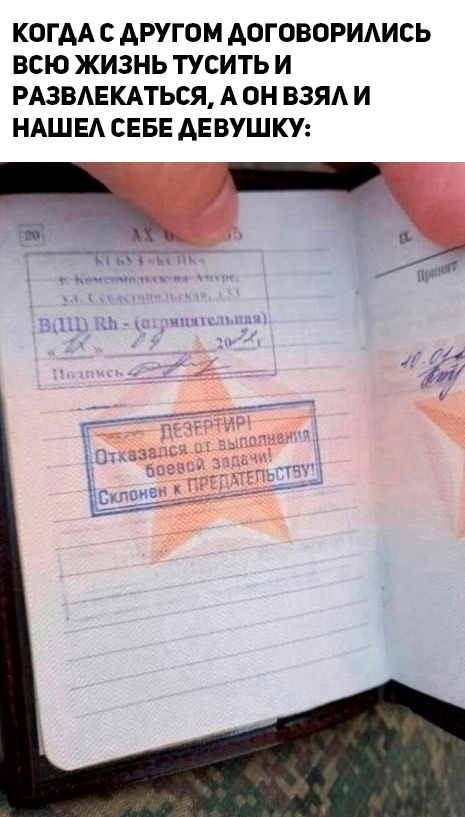 КОГДА С ДРУГОМ ДОГОВОРИЛИСЬ
ВСЮ ЖИЗНЬ ТУСИТЬ И
РАЗВЛЕКАТЬСЯ, А ОН ВЗЯЛ И
НАШЕЛ СЕБЕ ДЕВУШКУ:
20
АХ
г. Комсомольск-на-Амуре,
B(III) Rh - (отрицательная)
Подпись
ДЕЗЕРТИР!
Отказался от выполнения
боевой задачи!
Склонен к ПРЕДАТЕЛЬСТВУ!
IX.
Принят